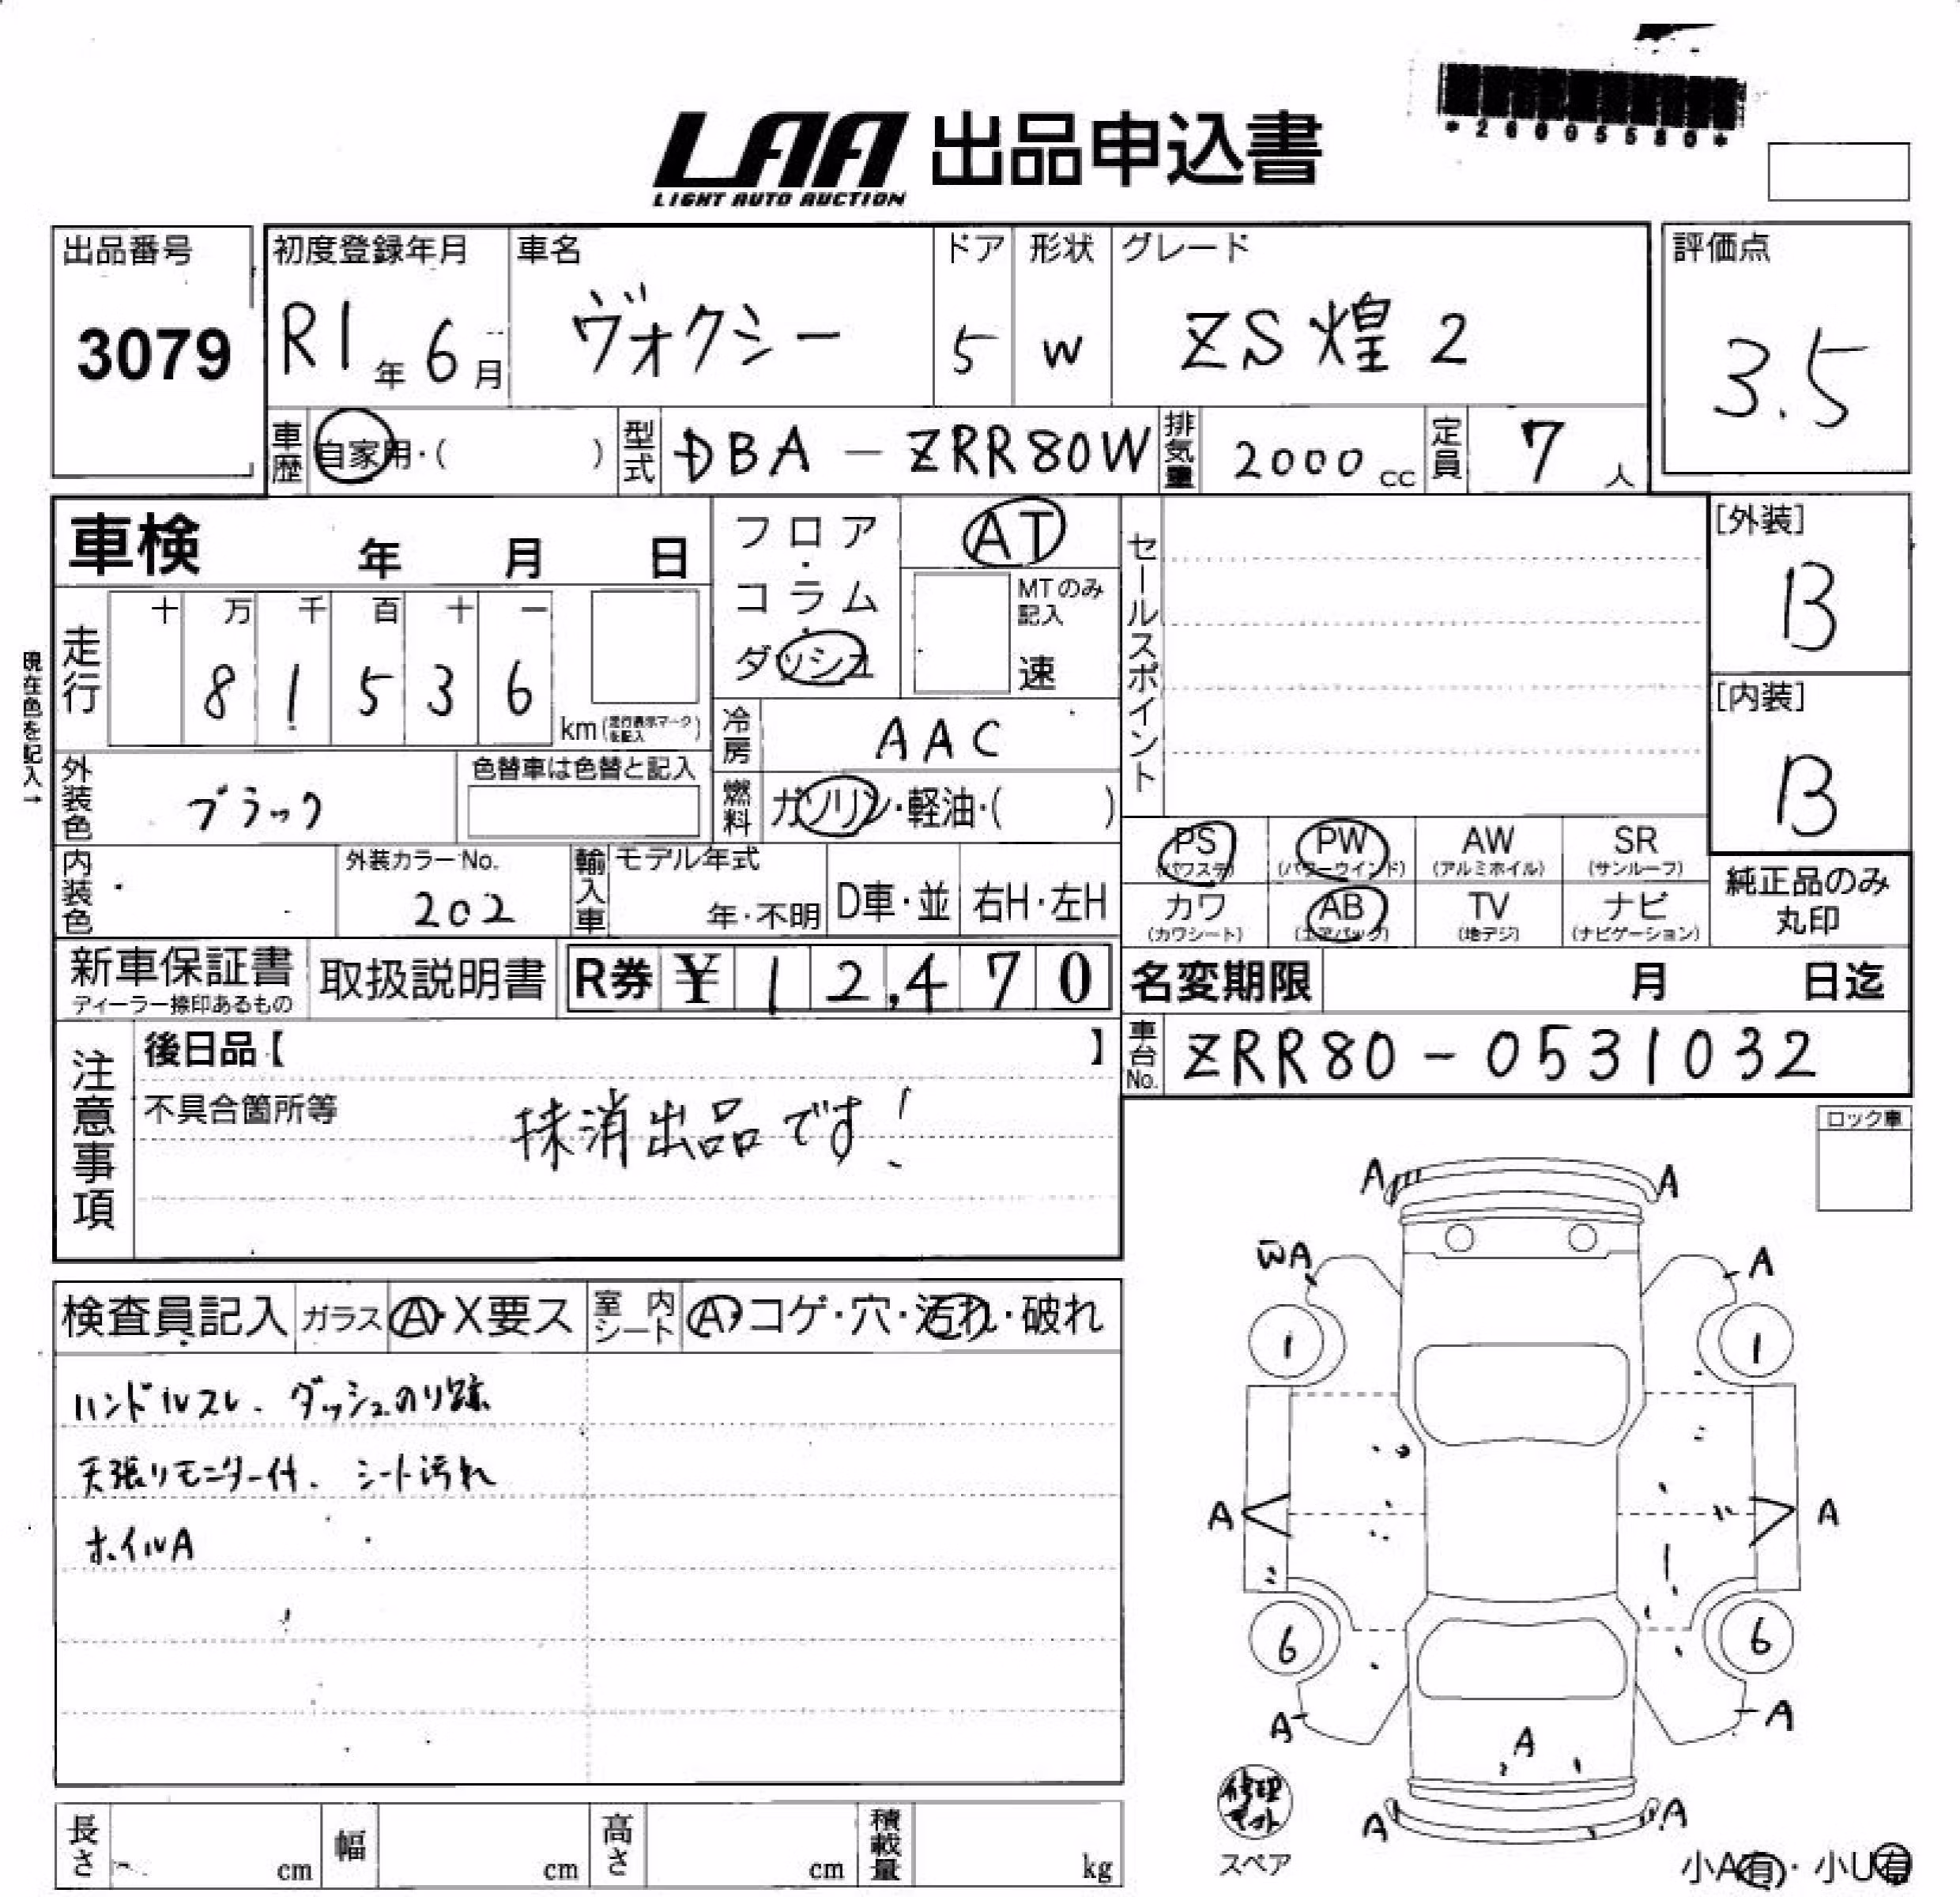 *26005580*
LAA 出品申込書
LIGHT AUTO AUCTION
出品番号 3079
初度登録年月 R1年6月
車名 ヴォクシー
ドア 5
形状 W
グレード ZS煌2
評価点 3.5
車歴 自家用・( )
型式 DBA-ZRR80W
排気量 2000cc
定員 7人
車検 年 月 日
フロア・コラム・ダッシュ
AT
MTのみ記入 速
セールスポイント
[外装] B
[内装] B
現在色を記入→
走行 十 万 千 百 十 一
81536 km (走行表示マークを記入)
冷房 AAC
外装色 ブラック
色替車は色替と記入
燃料 ガソリン・軽油・( )
PS (パワステ)
PW (パワーウインド)
AW (アルミホイル)
SR (サンルーフ)
カワ (カワシート)
AB (エアバック)
TV (地デジ)
ナビ (ナビゲーション)
純正品のみ丸印
内装色
外装カラーNo. 202
輸入車
モデル年式 年・不明
D車・並
右H・左H
新車保証書
ディーラー捺印あるもの
取扱説明書
R券 ¥12,470
名変期限 月 日迄
車台No. ZRR80-0531032
注意事項
後日品【 】
不具合箇所等
抹消出品です!
ロック車
検査員記入
ガラス A・X要ス
室内シート A・コゲ・穴・汚れ・破れ
ハンドルスレ. ダッシュのり跡
天張りモニター付. シート汚れ
ホイルA
A A
WA A
1 1
A A
6 6
A A
A
A A
修理キット
スペア
小A有・小U有
長さ cm
幅 cm
高さ cm
積載量 kg